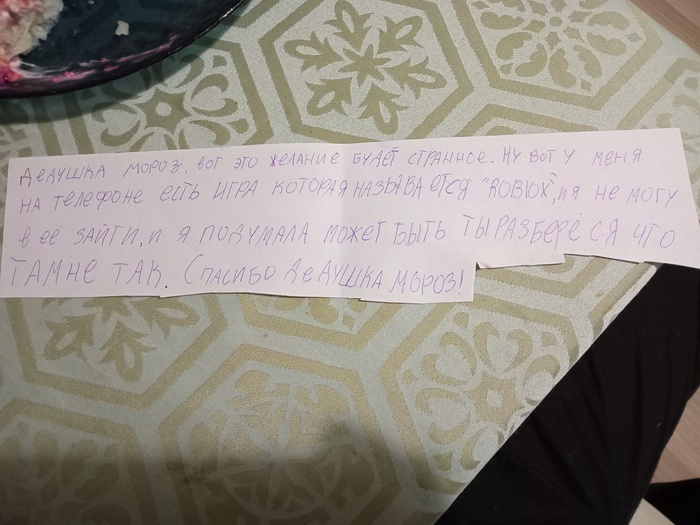 ДЕДУШКА МОРОЗ, ВОТ ЭТО ЖЕЛАНИЕ БУДЕТ СТРАННОЕ. НУ ВОТ У МЕНЯ
НА ТЕЛЕФОНЕ ЕСТЬ ИГРА КОТОРАЯ НАЗЫВАЕТСЯ "ROBlOX", И Я НЕ МОГУ
В ЕЁ ЗАЙТИ, И Я ПОДУМАЛА МОЖЕТ БЫТЬ ТЫ РАЗБЕРЁСЯ ЧТО
ТАМ НЕ ТАК. СПАСИБО ДЕДУШКА МОРОЗ!